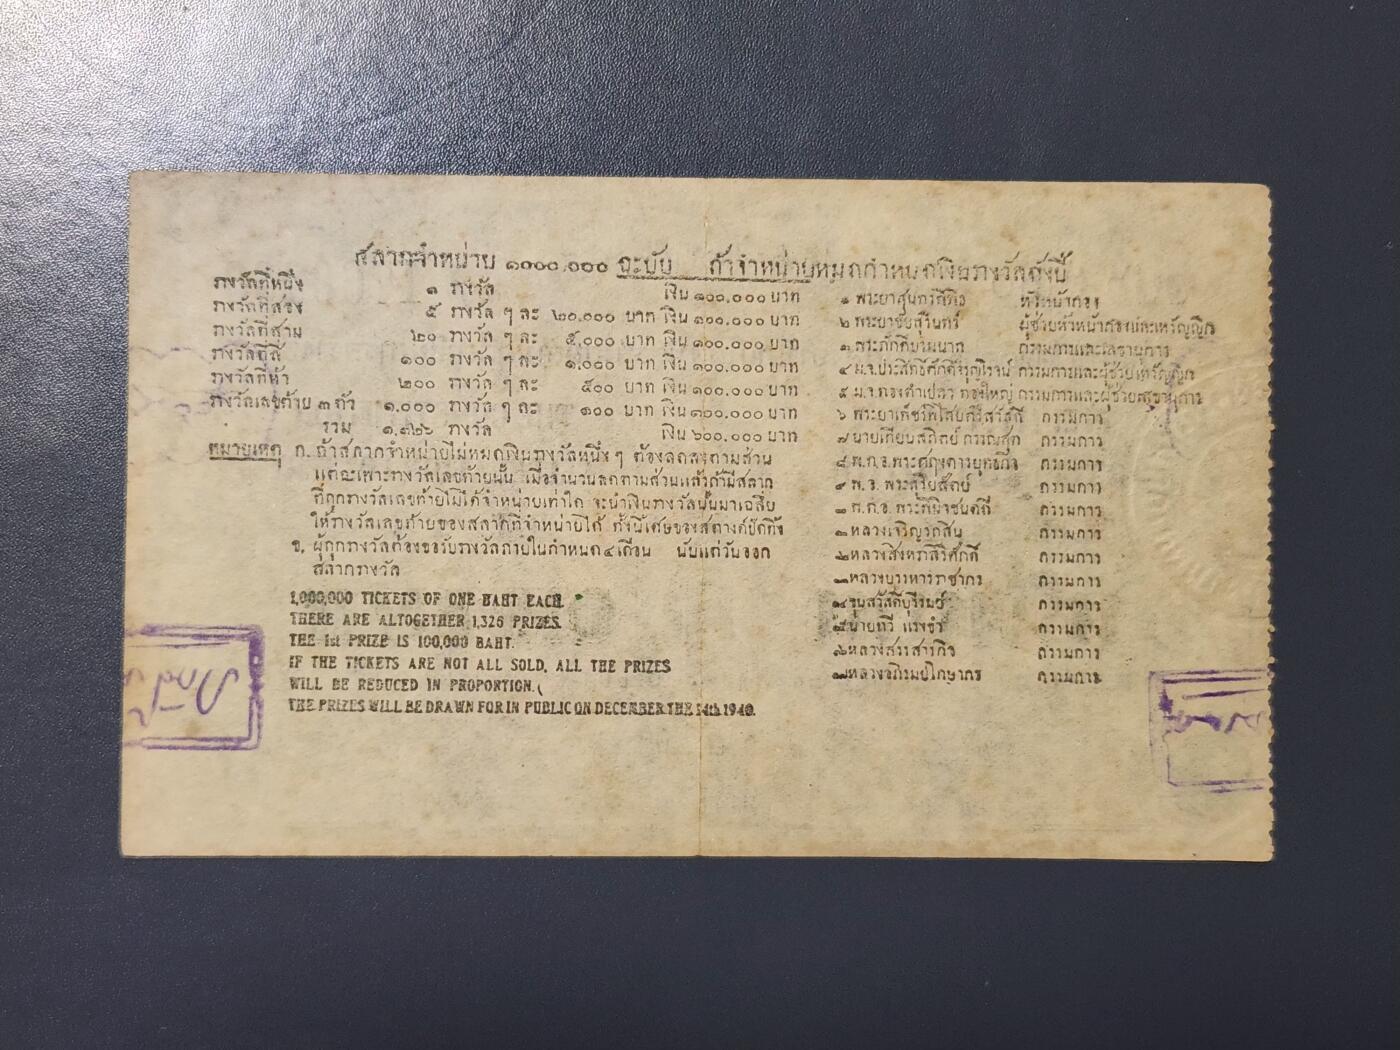 สลากจำหน่าย ๑๐๐๐,๐๐๐ ฉะบับ ถ้าจำหน่ายหมดกำหนดเงินรางวัลดังนี้
รางวัลที่หนึ่ง ๑ รางวัล เงิน ๑๐๐,๐๐๐ บาท
รางวัลที่สอง ๕ รางวัล ๆ ละ ๒๐,๐๐๐ บาท เงิน ๑๐๐,๐๐๐ บาท
รางวัลที่สาม ๒๐ รางวัล ๆ ละ ๕,๐๐๐ บาท เงิน ๑๐๐,๐๐๐ บาท
รางวัลที่สี่ ๑๐๐ รางวัล ๆ ละ ๑,๐๐๐ บาท เงิน ๑๐๐,๐๐๐ บาท
รางวัลที่ห้า ๒๐๐ รางวัล ๆ ละ ๕๐๐ บาท เงิน ๑๐๐,๐๐๐ บาท
รางวัลเลขท้าย ๓ ตัว ๑,๐๐๐ รางวัล ๆ ละ ๑๐๐ บาท เงิน ๑๐๐,๐๐๐ บาท
รวม ๑,๓๒๖ รางวัล เงิน ๖๐๐,๐๐๐ บาท
หมายเหตุ ก. ถ้าสลากจำหน่ายไม่หมดเงินรางวัลหนึ่ง ๆ ต้องลดลงตามส่วน
แต่ฉะเพาะรางวัลเลขท้ายนั้น เมื่อจำนวนลดตามส่วนแล้วถ้ามีสลาก
ที่ถูกรางวัลเลขท้ายไม่ได้จำหน่ายเท่าใด จะนำเงินรางวัลนั้นมาเฉลี่ย
ให้รางวัลเลขท้ายของสลากที่จำหน่ายได้ ทั้งนี้เศษของสตางค์ปัดทิ้ง
ข. ผู้ถูกรางวัลต้องขอรับรางวัลภายในกำหนด ๔ เดือน นับแต่วันออก
สลากรางวัล
1,000,000 TICKETS OF ONE BAHT EACH.
THERE ARE ALTOGETHER 1,326 PRIZES.
THE 1st PRIZE IS 100,000 BAHT.
IF THE TICKETS ARE NOT ALL SOLD, ALL THE PRIZES
WILL BE REDUCED IN PROPORTION.
THE PRIZES WILL BE DRAWN FOR IN PUBLIC ON DECEMBER THE 14th 1940.
๑ พระยาสุนทรสีกิจ หัวหน้ากอง
๒ พระยาชัยสุรินทร์ ผู้ช่วยหัวหน้ากองและเหรัญญิก
๓ พระภักดีบรมนาถ กรรมการและเลขานุการ
๔ ม.จ.ประสิทธิ์ศักดิ์จรูญโรจน์ กรรมการและผู้ช่วยเหรัญญิก
๕ ม.ร. ทองใหญ่ กรรมการและผู้ช่วยเลขานุการ
๖ กรรมการ
๗ นายเทียบสถิตย์ กรรมการ
๘ พ.ท.อ.พระศฤงคารยุทธกิจ กรรมการ
๙ พ.ร. พระสุริยสัตย์ กรรมการ
๑๐ พ.ต.อ. พระพินิจชนคดี กรรมการ
๑๑ หลวงเจริญรถสิน กรรมการ
๑๒ หลวงสิงหศิริศักดิ์ กรรมการ
๑๓ หลวงบริหารราชากร กรรมการ
๑๔ ขุนสวัสดิ์บุรีรมย์ กรรมการ
๑๕ นายทวี แรงขำ กรรมการ
๑๖ หลวงสรรสารกิจ กรรมการ
๑๗ หลวงอภิรมย์โกษากร กรรมการ